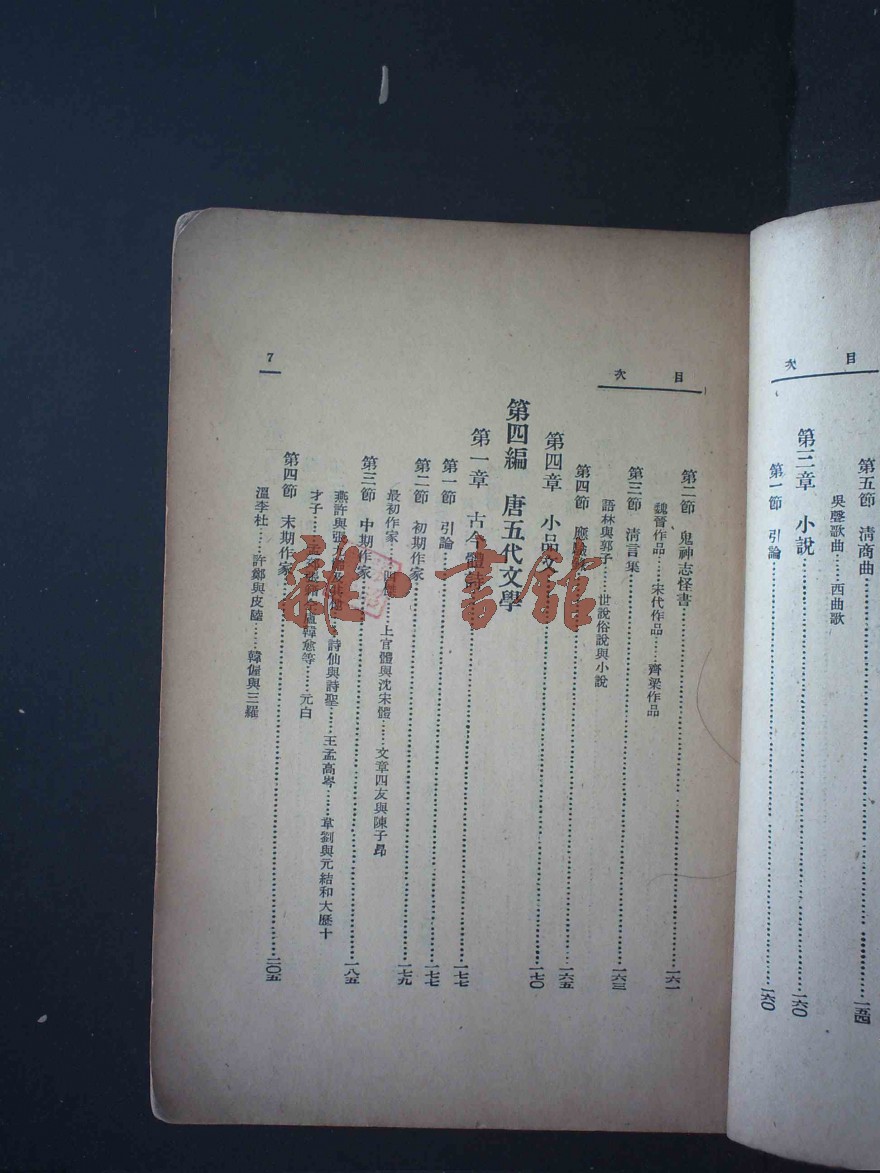 目次
第五節 清商曲……一五四
吳聲歌曲……西曲歌
第三章 小說……一六〇
第一節 引論……一六〇
目次
第二節 鬼神志怪書……一六一
魏晉作品……宋代作品……齊梁作品
第三節 清言集……一六三
語林與郭子……世說俗說與小說
第四節 應……一六五
第四章 小品文……一七〇
第四編 唐五代文學
第一章 古今體詩……一七七
第一節 引論……一七七
第二節 初期作家……一七九
最初作家……上官體與沈宋體……文章四友與陳子昂
第三節 中期作家……一八五
燕許與張九齡……詩仙與詩聖……王孟高岑……韋劉與元結和大歷十
才子……韓愈等……元白
第四節 末期作家……二〇五
溫李杜……許鄭與皮陸……韓偓與三羅
7
雜·書館